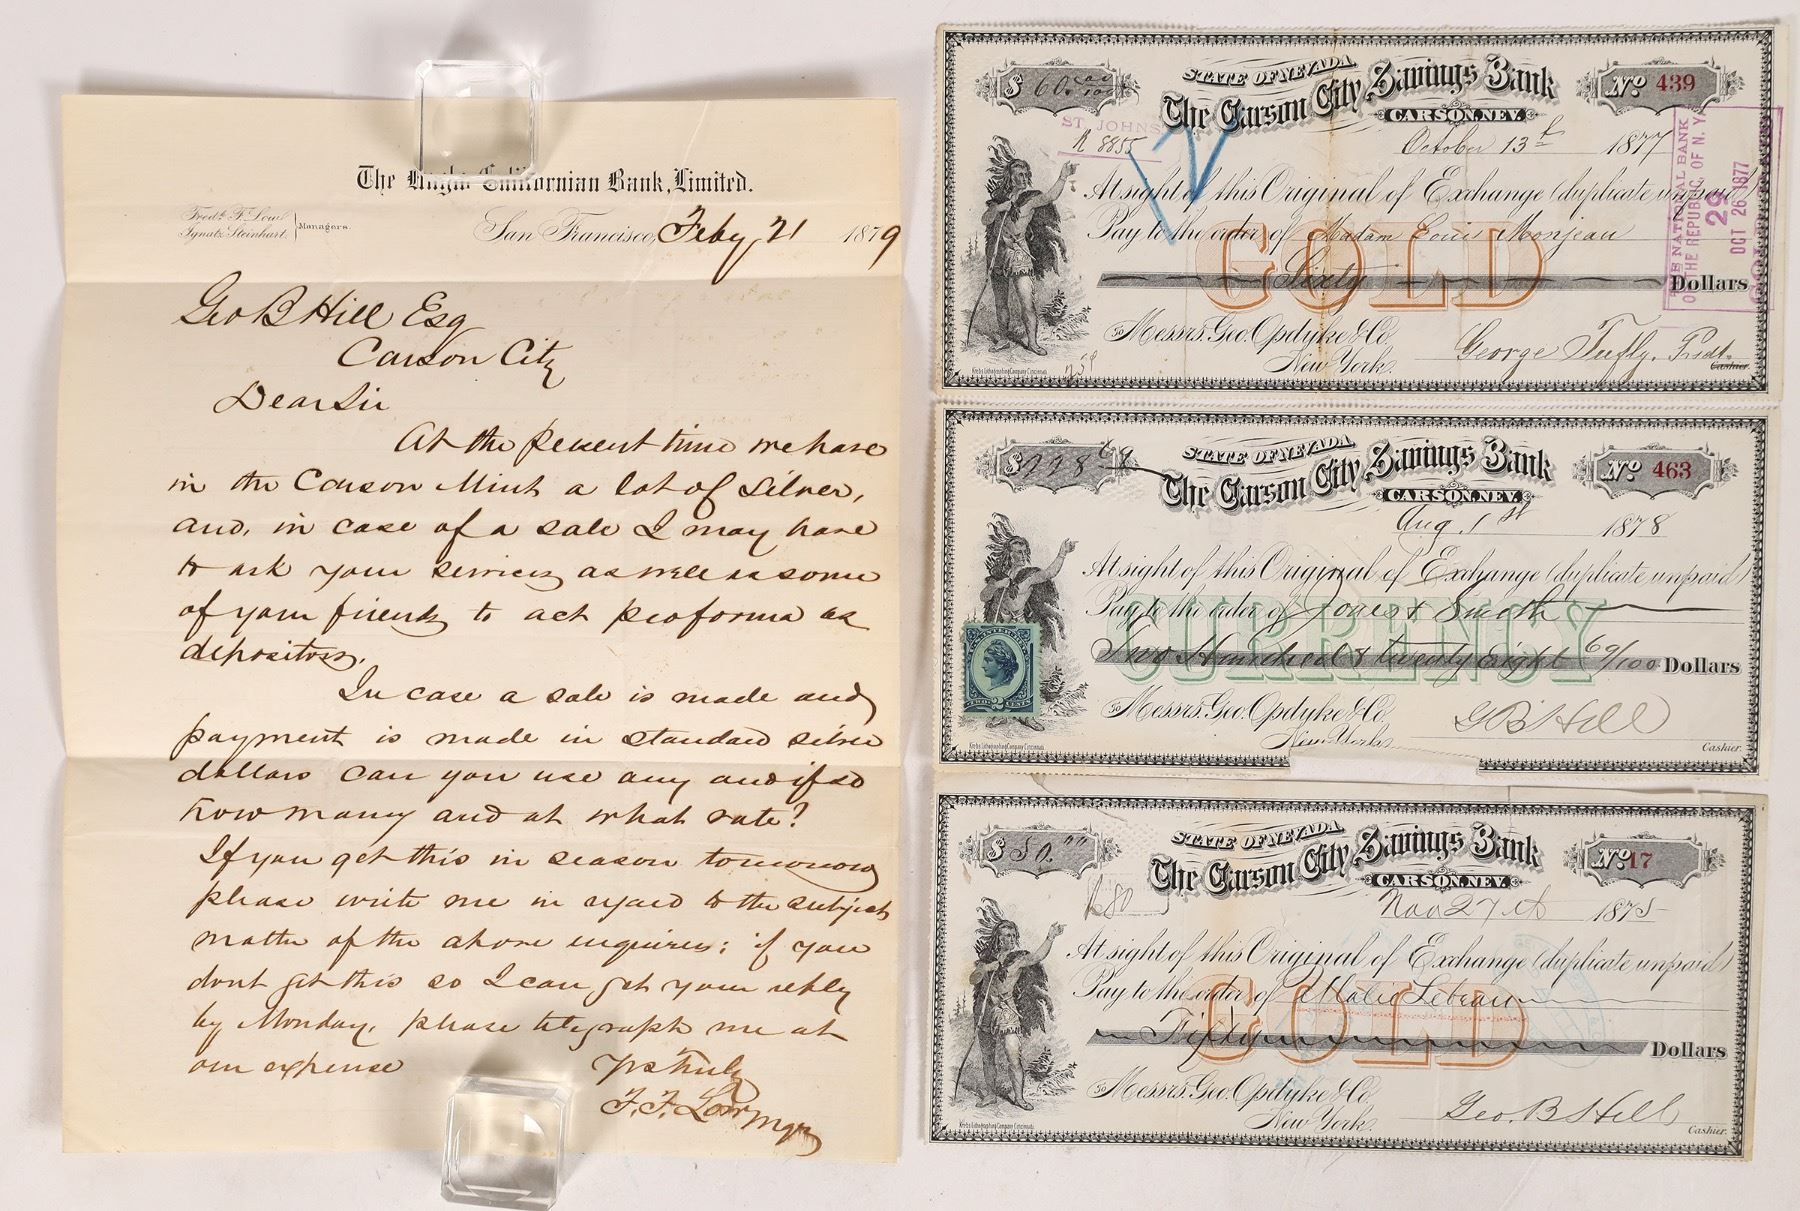 The Anglo Californian Bank, Limited.
Fredk. F. Low
Ignatz Steinhart.
Managers.
San Francisco, Feby 21 1879
Geo B Hill Esq
Carson City
Dear Sir
At the present time we have
in the Carson Mint a lot of silver,
and, in case of a sale I may have
to ask your services as well as some
of your friends to act proforma as
depositors.
In case a sale is made and
payment is made in standard silver
dollars can you use any and if so
how many and at what rate?
If you get this in season tomorrow
please write me in regard to the subject
matter of the above enquiries; if you
dont get this so I can get your reply
by Monday, please telegraph me at
our expense
Yrs truly
F. F. Low Mgr
$ 60.00/100
STATE OF NEVADA
The Carson City Savings Bank
CARSON, NEV.
No 439
ST. JOHNS
8855
October 13th 1877
At sight of this Original of Exchange (duplicate unpaid)
Pay to the order of Madam Louis Monjeau
GOLD
Sixty Dollars
To Messrs. Geo. Opdyke & Co.
New York.
George Tufly, Prsdt.
Cashier.
Krebs Lithographing Company Cincinnati
THE NATIONAL BANK
OF THE REPUBLIC, OF N. Y.
29
OCT 26 1877
$ 228 69
STATE OF NEVADA
The Carson City Savings Bank
CARSON, NEV.
No 463
Aug. 1st 1878
At sight of this Original of Exchange (duplicate unpaid)
Pay to the order of Jones & Smith
CURRENCY
Two Hundred & twenty Eight 69/100 Dollars
To Messrs. Geo. Opdyke & Co.
New York.
G B Hill
Cashier.
Krebs Lithographing Company Cincinnati
2
$ 50.00
STATE OF NEVADA
The Carson City Savings Bank
CARSON, NEV.
No 17
80
Nov 27th 1875
At sight of this Original of Exchange (duplicate unpaid)
Pay to the order of Lebeau
GOLD
Fifty Dollars
To Messrs. Geo. Opdyke & Co.
New York.
Geo. B Hill
Cashier.
Krebs Lithographing Company Cincinnati